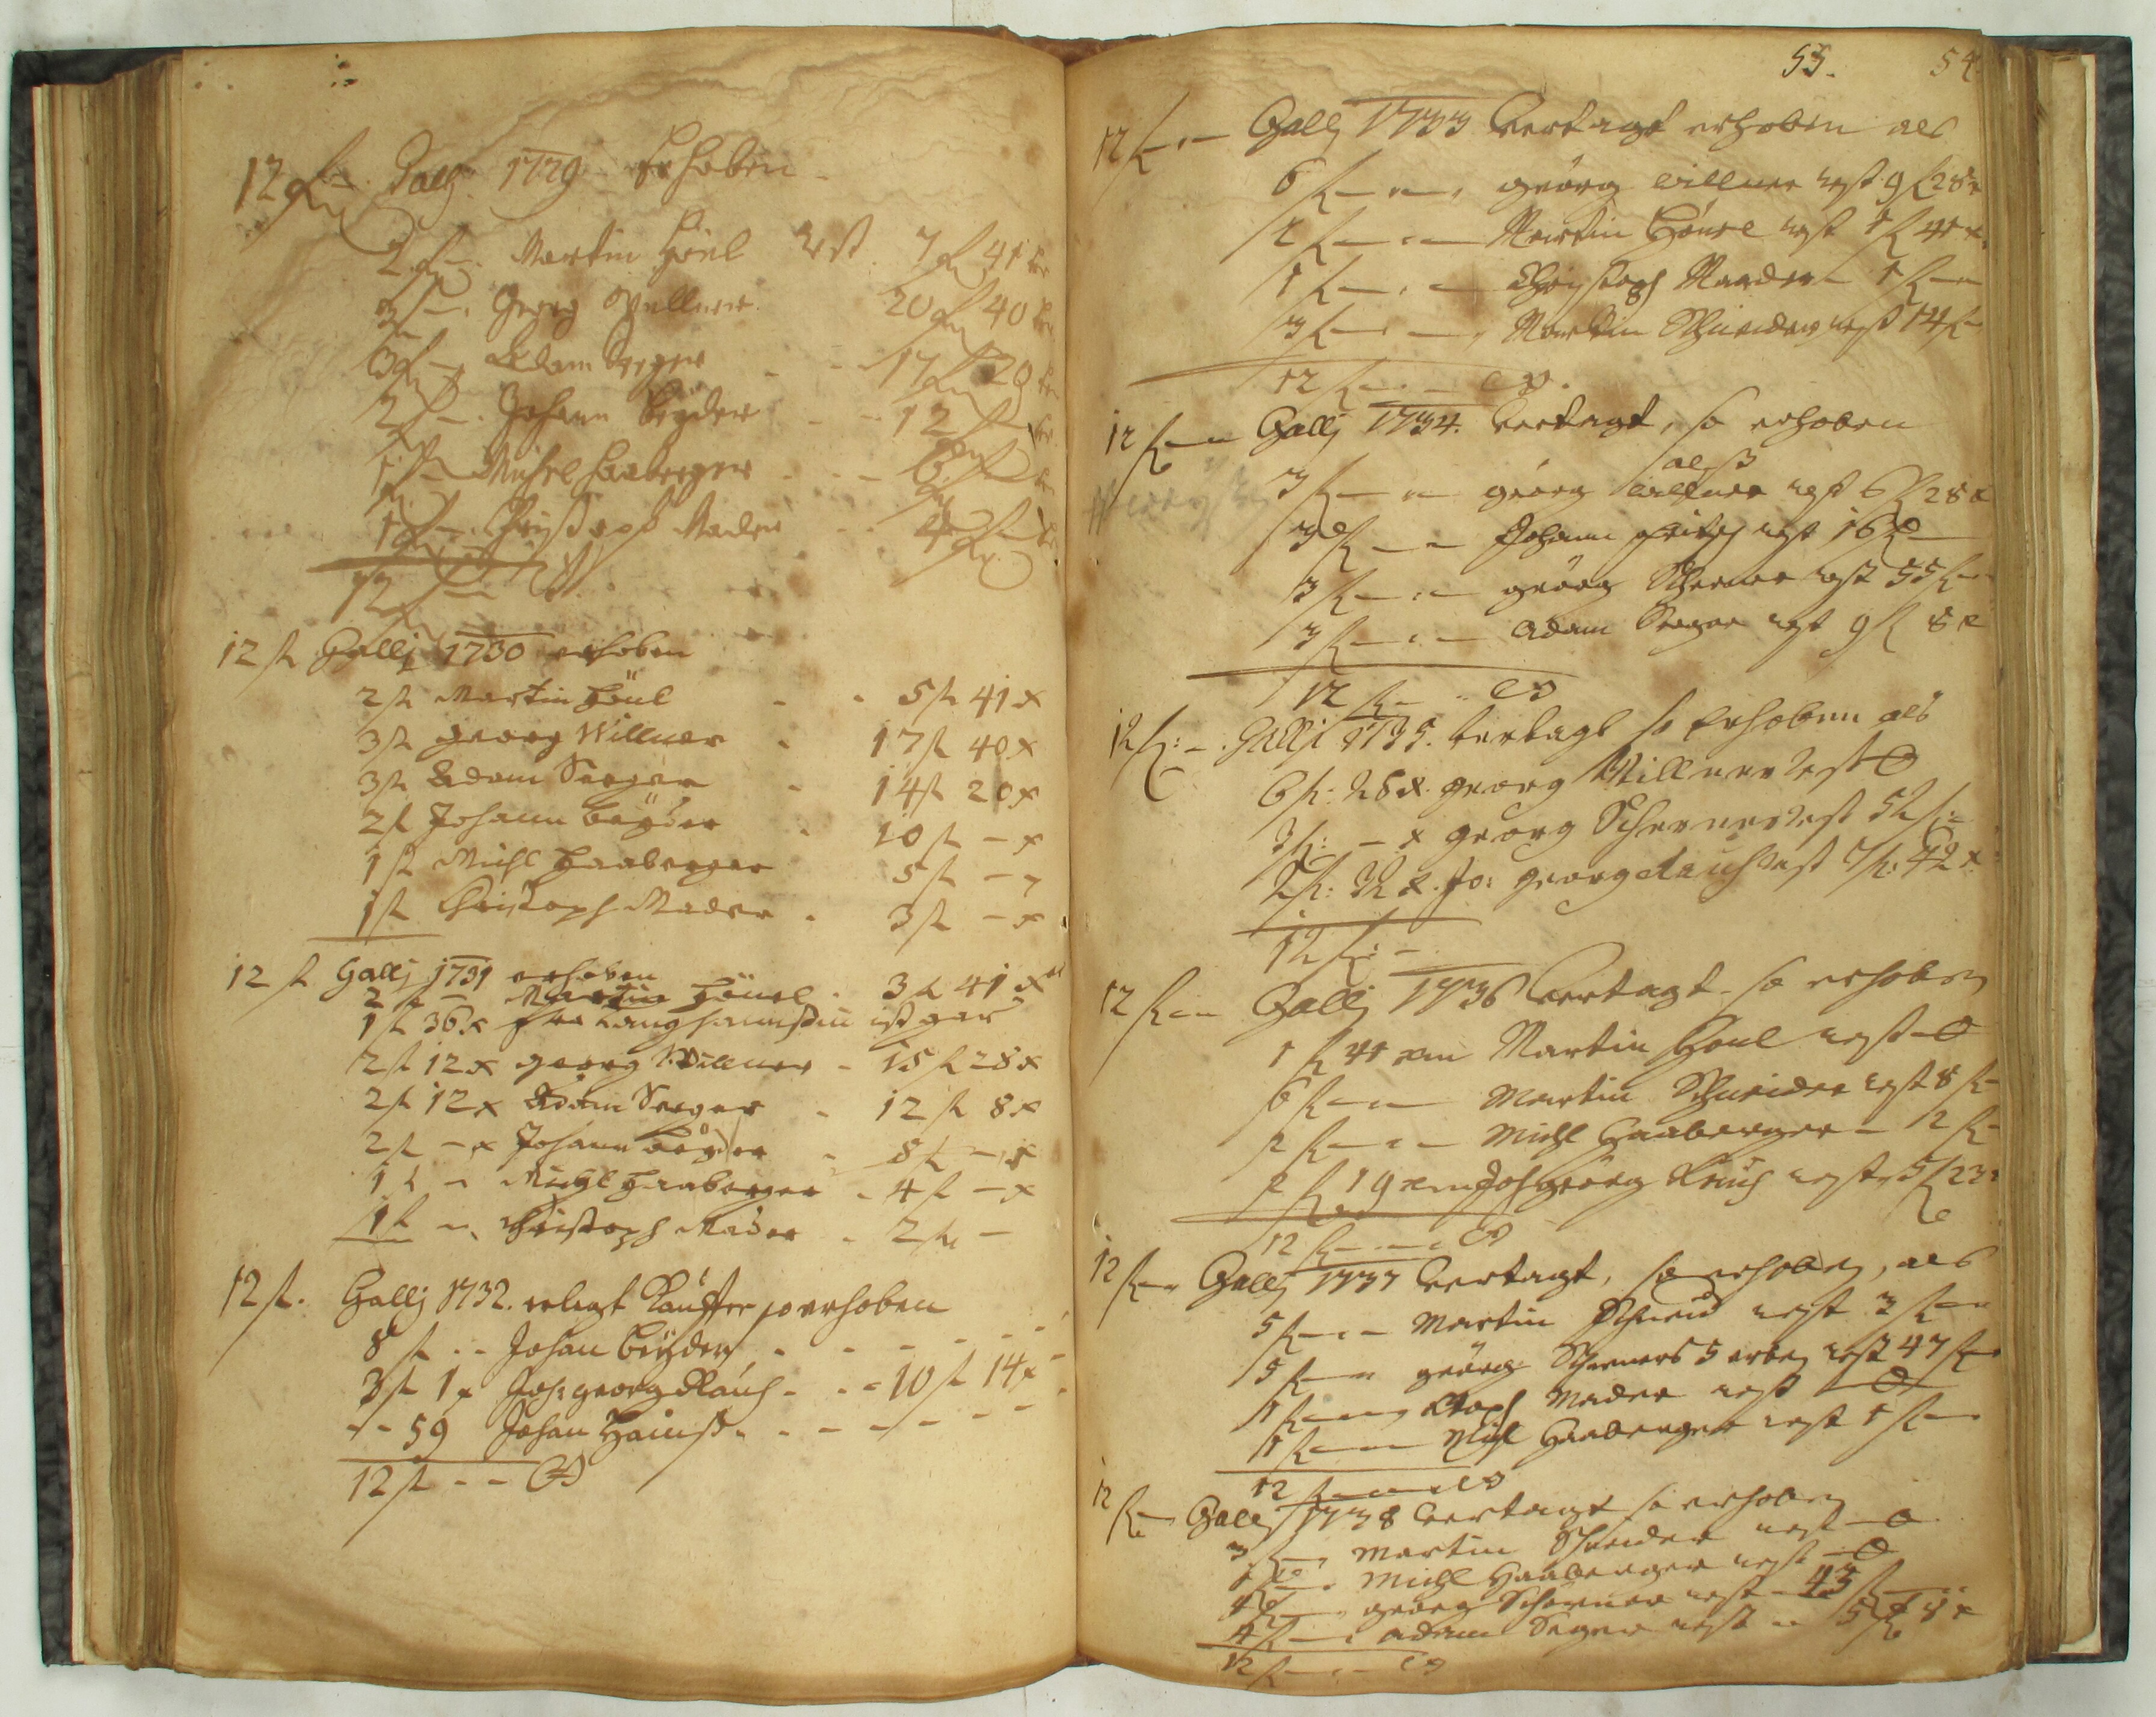 12 fl — Gallj 1729 Erhoben
2 fl — Martin Höül Rst 7 fl 41 kr
3 fl — Georg Willner 20 fl 40 kr
3 fl — Adam Seeger 17 fl 20 kr
2 fl — Johann Beÿder 12 fl —
1 fl — Michel Haaberger 6 fl —
1 fl — Christoph Mader 4 fl —
12 fl —
12 fl Gallj 1730 erhoben
2 fl Martin Höül 5 fl 41 x
3 fl georg Willner 17 fl 40 x
3 fl Adam Seeger 14 fl 20 x
2 fl Johann beÿder 10 fl — x
1 fl Michl Haaberger 5 fl —
1 fl Christoph Mader 3 fl — x
12 fl Gallj 1731 erhoben
2 fl — Martin Höüel 3 fl 41 x
1 fl 36 x Langhannßin ist gar
2 fl 12 x georg Willner 15 fl 28 x
2 fl 12 x Adam Seeger 12 fl 8 x
2 fl — x Johann beÿder 8 fl — x
1 fl — Michl Haaberger 4 fl — x
1 fl — Christoph Mader 2 fl —
12 fl. Gallj 1732. erlegt Kauffer so erhoben
8 fl -- Johan Beÿder
3 fl 1 x Joh: georg Rauch 10 fl 14 x
-- 59 Johan Hainß
12 fl --
53. 54
12 fl — Gallj 1733 vertagt erhoben als
6 fl — georg Willner rest 9 fl 28 x
2 fl — Martin Höuel rest 1 fl 41 x
1 fl — Christoph Maader 1 fl —
3 fl — Martin Schneider rest 14 fl —
12 fl —
12 fl — Gallj 1734. vertagt, so erhoben
alß
3 fl — georg Willner rest 6 fl 28 x
3 fl — Johann rest 16 fl —
3 fl — georg Scherner rest 55 fl —
3 fl — Adam Seeger rest 9 fl 8 x
12 fl —
12 fl: — Gallj 1735. vertagt so Erhoben als
6 fl: 28 x. georg Willner Rest 0
3 fl: — x georg Scherner Rest 52 fl: —
2 fl: 32 x. Jo: georg Rauch Rest 7 fl: 42 x
12 fl: —
12 fl — Gallj 1736 vertagt so erhoben
1 fl 41 x Martin Höul rest 0
6 fl — Martin Schneider rest 8 fl —
2 fl — Michl Haaberger — 2 fl —
2 fl 19 x Joh georg Rauch rest 5 fl 23 x
12 fl —
12 fl — Gallj 1737 vertagt, so erhoben, als
5 fl — Martin Schneid rest 3 fl —
5 fl — georg Scherners 5 erben rest 47 fl —
1 fl — Stoph Mader rest 0
1 fl — Michl Haaberger rest 1 fl —
12 fl —
12 fl — Gallj 1738 vertagt so erhoben
3 fl — Martin Schneider rest 0
1 fl — Michl Haaberger rest 0
4 fl — georg Scherner rest 43 fl —
4 fl — Adam Seger rest 5 fl 8 x
12 fl —